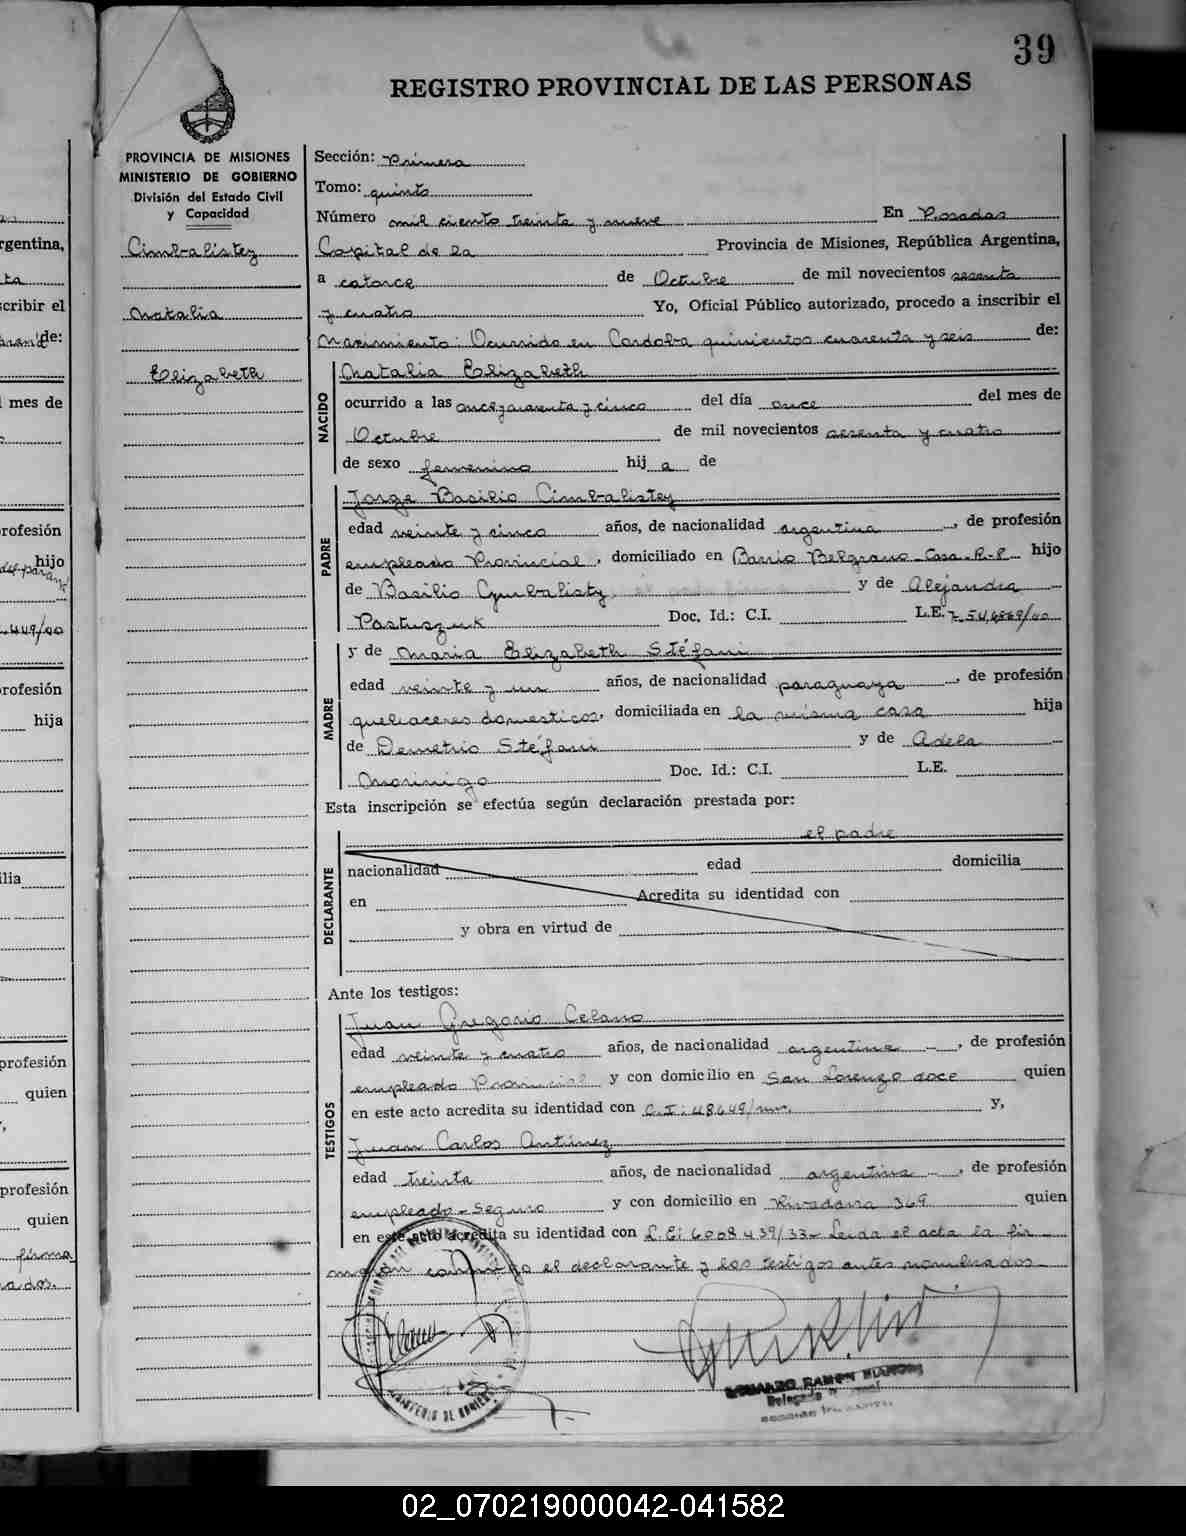 39
REGISTRO PROVINCIAL DE LAS PERSONAS
PROVINCIA DE MISIONES
MINISTERIO DE GOBIERNO
División del Estado Civil
y Capacidad
Cimbalistey
Natalia
Elizabeth
Sección: Primera
Tomo: quinto
Número mil ciento treinta y nueve En Posadas
Capital de la Provincia de Misiones, República Argentina,
a catorce de Octubre de mil novecientos sesenta
y cuatro Yo, Oficial Público autorizado, procedo a inscribir el
Nacimiento: Ocurrido en Cordoba quinientos cuarenta y seis de:
NACIDO
Natalia Elizabeth
ocurrido a las once y cuarenta y cinco del día once del mes de
Octubre de mil novecientos sesenta y cuatro
de sexo femenino hij a de
PADRE
Jorge Basilio Cimbalistey
edad veinte y cinco años, de nacionalidad argentina, de profesión
empleado Provincial, domiciliado en Barrio Belgrano - Casa - R-P hijo
de Basilio Cymbalisty y de Alejandra
Pastuszuk Doc. Id.: C.I. L.E.
y de Maria Elizabeth Stéfani
MADRE
edad veinte y un años, de nacionalidad paraguaya, de profesión
quehaceres domesticos, domiciliada en la misma casa hija
de Demetrio Stéfani y de Adela
Morinigo Doc. Id.: C.I. L.E.
Esta inscripción se efectúa según declaración prestada por:
el padre
DECLARANTE
nacionalidad edad domicilia
en Acredita su identidad con
y obra en virtud de
Ante los testigos:
TESTIGOS
Juan Gregorio Celano
edad veinte y cuatro años, de nacionalidad argentina, de profesión
empleado Provincial y con domicilio en San Lorenzo doce quien
en este acto acredita su identidad con C.I: 48649/ y,
Juan Carlos Antúnez
edad treinta años, de nacionalidad argentina, de profesión
empleado - Seguro y con domicilio en Rivadavia 369 quien
en este acto acredita su identidad con L.E: 6008439/33 - Leida el acta la fir
maron conmigo el declarante y los testigos antes nombrados
EDUARDO RAMON
02_070219000042-041582